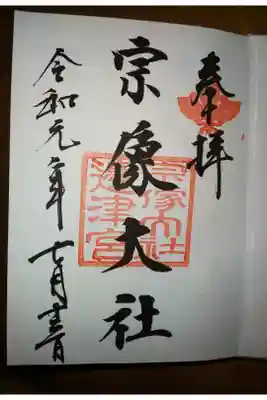 奉拝
宗像大社
宗像大社
辺津宮
令和元年七月十三日